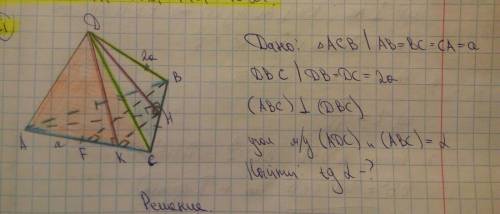 D
2a
B
Дано: △ACB | AB=BC=CA=a
DBC | DB=DC=2a
H
(ABC) ⊥ (DBC)
A
a
F
K
C
угол м/у (ADC) и (ABC)=α
Найти tg α-?
Решение.